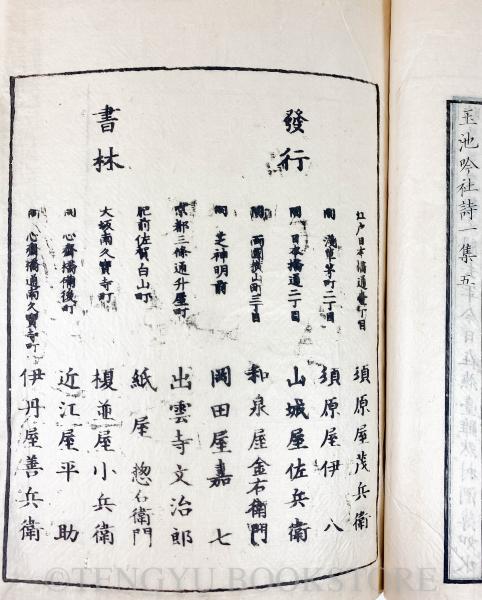 發行
書林
江戸日本橋通壹丁目 須原屋茂兵衛
同 淺草茅町二丁目 須原屋伊八
同 日本橋通二丁目 山城屋佐兵衛
同 両國横山町三丁目 和泉屋金右衛門
同 芝神明前 岡田屋嘉七
京都三條通升屋町 出雲寺文治郎
肥前佐賀白山町 紙屋惣右衛門
大坂南久寶寺町 榎並屋小兵衛
同 心齋橋備後町 近江屋平助
同 心齋橋通南久寶寺町 伊丹屋善兵衛
玉池吟社詩一集五
©TENGYU BOOKSTORE